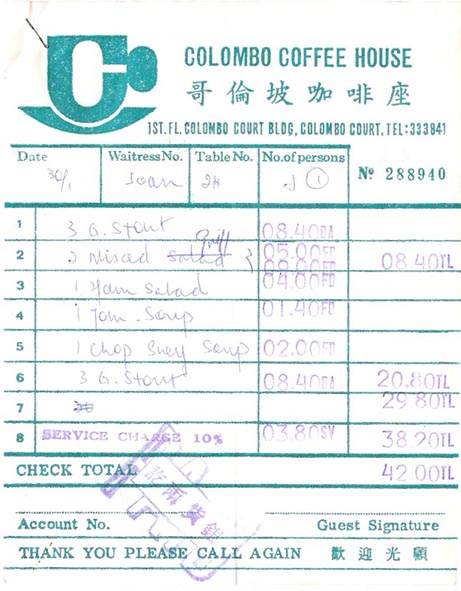 COLOMBO COFFEE HOUSE
哥倫坡咖啡座
1ST. FL. COLOMBO COURT BLDG, COLOMBO COURT. TEL: 333841
Date Waitress No. Table No. No. of persons Nº 288940
30/1 Joan ①
1 3 G. Stout 08.40BA
2 Mixed Salad Grill 05.00FD 08.40TL
3 1 Ham Salad 04.00FD
4 1 Tom. Soup 01.40FD
5 1 Chop Suey Soup 02.00FD
6 3 G. Stout 08.40BA 20.80TL
7 29.80TL
8 SERVICE CHARGE 10% 03.80SV 38.20TL
CHECK TOTAL 42.00TL
Account No. Guest Signature
THANK YOU PLEASE CALL AGAIN 歡迎光顧